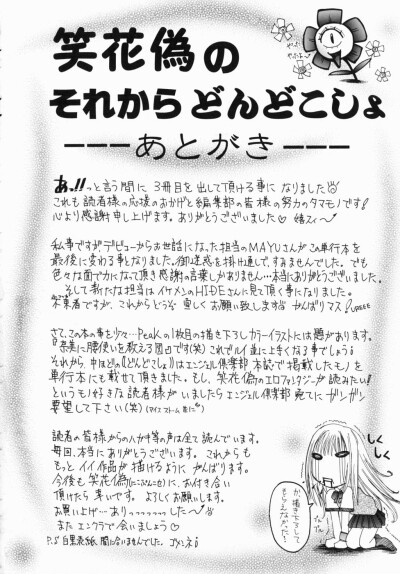 笑花偽の
それから どんどこしょ
---あとがき---
あっ!!っと言う間に 3冊目を出して頂ける事に なりました
これも読者様の応援のおかげと編集部の皆様の努力のタマモノです!
心より感謝申し上げます。ありがとうございました
私事ですがデビューからお世話になった担当のMAYUさんがこの単行本を
最後に変わる事となりました。御迷惑を掛け通しで、すみませんでした。でも
色々な面で力になって頂き感謝の言葉しかありません…本当にありがとうございました。
そして新たな担当はイケメンのHIDEさんに見て頂く事になりました。
不束者ですが、これからどうぞ宜しくお願い致します がんばりマス!
さて、この本の事を少々…Peakの1枚目の描き下ろしカラーイラストには題があります。
『奈美に腰使いを教える図』です(笑) これでルイ並に上手くなる事でしょう
それから、中ほどの『どんどこしょ』はエンジェル倶楽部 本誌で掲載したモノを
単行本にも載せて頂きました。もし、笑花偽のエロファンタジーが読みたい!
というモノ好きな読者様がいましたら エンジェル倶楽部 宛てに ガンガン
要望して下さい(笑)
読者の皆様からのハガキ等の声は全て読んでいます。
毎回、本当にありがとうございます。これからも
もっと イイ作品が描けるように がんばります。
今後も 笑花偽(にこぷんだ)に、お付き合い
頂けたら 幸いです。よろしくお願いします。
お買い上げーありっっっっっっした〜
また エンクラで会いましょう♡
P.S 自黒表紙、間に合いませんでした。ゴメンネ
しくしく